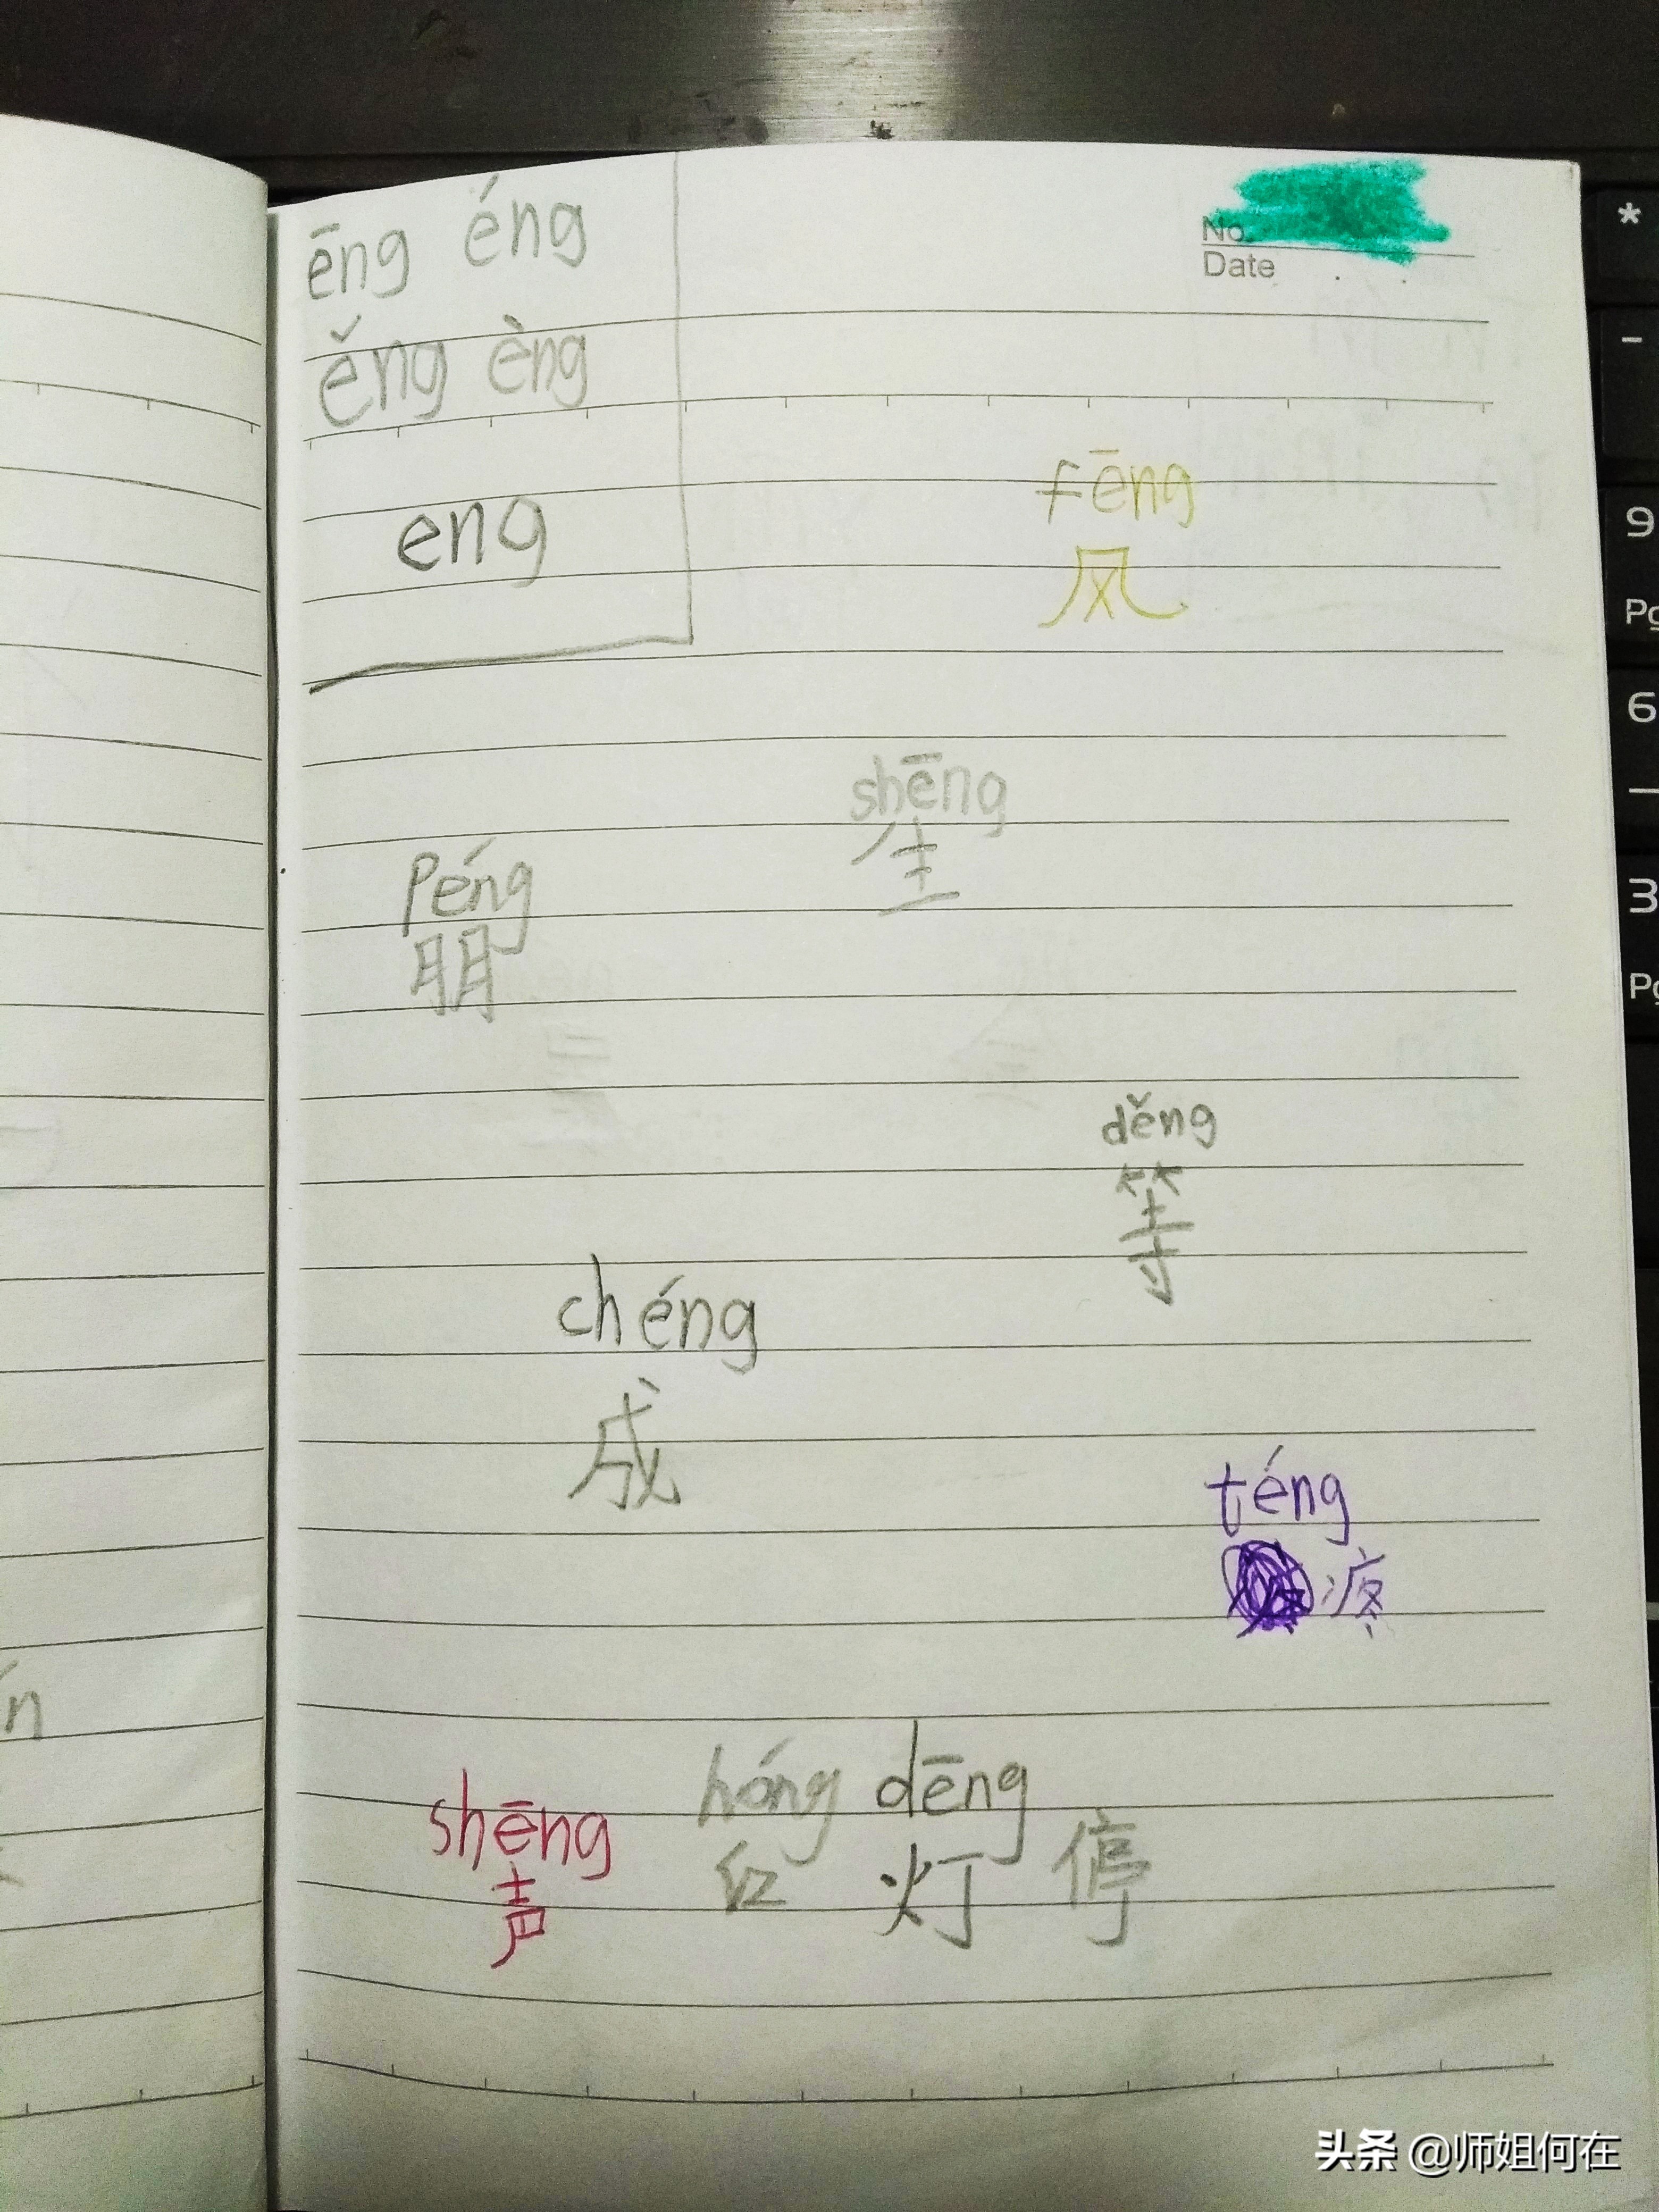 ēng éng
ěng èng
eng
No.
Date
fēng
风
shēng
生
péng
朋
děng
等
chéng
成
téng
疼
shēng
声
hóng dēng
红 灯 停
ń
*
-
9
Pg
6
3
Pg
头条 @师姐何在